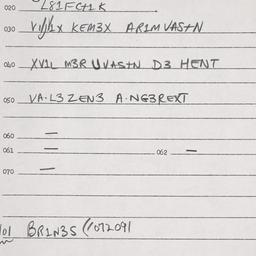 020 L81FCt1K
030 KEM3X AR1M VAStN
060 XV1L M3R UVAStN D3 HENT
050 VA·L3ZEN3 A·NG3REXT
060 —
061 — 062 —
070 —
101 BR1N3S (1072091